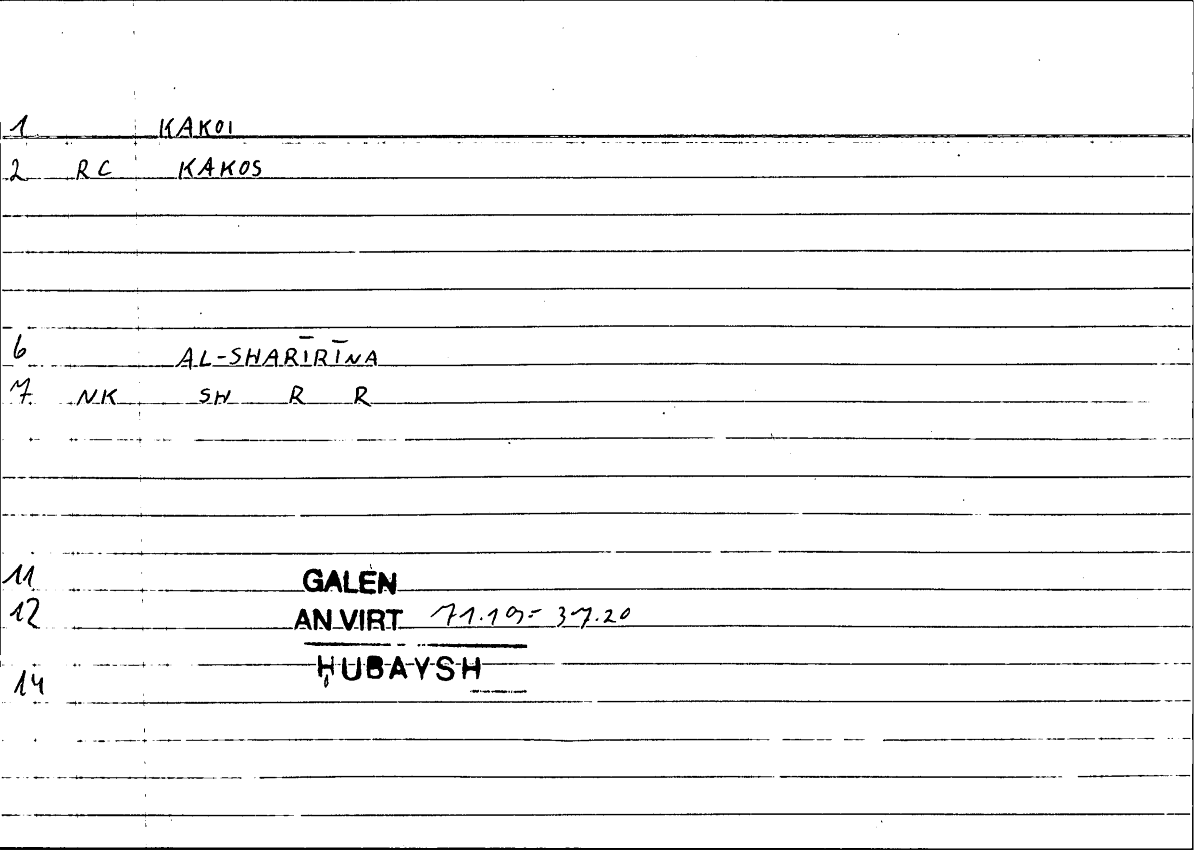 1 KAKOI
2 RC KAKOS
6 AL-SHARĪRĪNA
7 NK SH R R
11 GALEN
12 AN VIRT 71.19= 37.20
ḤUBAYSH
14